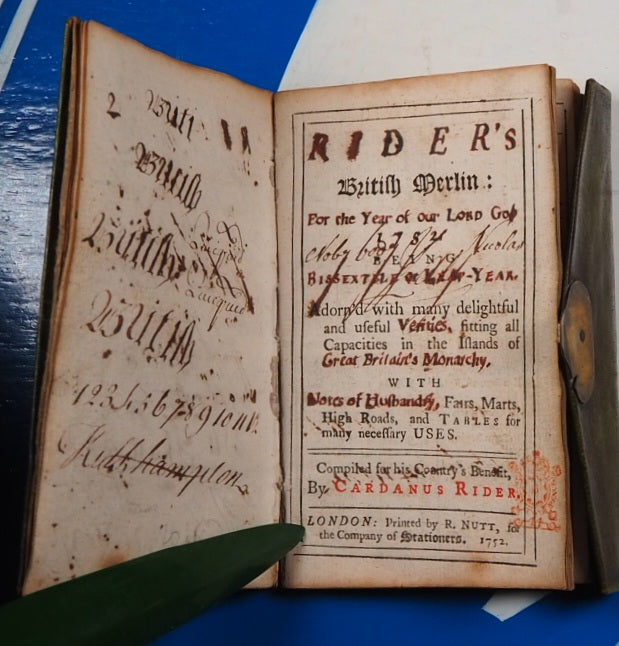 Britiſh
Britiſh
Britiſh
1 2 3 4 5 6 7 8 9 10 11
Ruth hampton
RIDER's
Britiſh Merlin :
For the Year of our LORD GOD
BEING
BISSEXTILE or LEAP-YEAR.
Adorn'd with many delightful
and uſeful Verities, fitting all
Capacities in the Iſlands of
Great Britain's Monarchy.
WITH
Notes of Husbandry, Fairs, Marts,
High Roads, and TABLES for
many neceſſary USES.
Compiled for his Country's Benefit,
By CARDANUS RIDER.
LONDON: Printed by R. NUTT, for
the Company of Stationers. 1752.